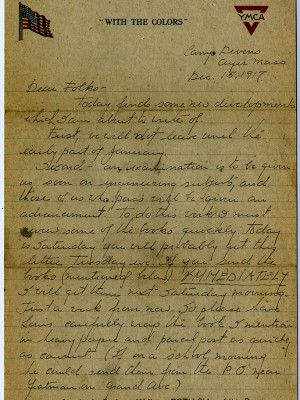 "WITH THE COLORS"
YMCA
Camp Devens
Ayer Mass
Dec. 15, 1917.
Dear Folks-
Today finds some new developments
which I am about to write of.
First, we will not leave until the
early part of January.
Second- an examination is to be given
us soon on engineering subjects, and
those of us who pass will be given an
advancement. To do this work I must
have some of the books quickly. Today
is Saturday you will probably get this
letter Tuesday. If you send the
books (mentioned below) IMMEDIATELY
I will get them next Saturday morning.
Just a week from now. So please have
carefully wrap the books I mention
in heavy paper and parcel post as quickly
as can. (If on a school morning
he could send them from the P.O. near
on Grand Ave.)